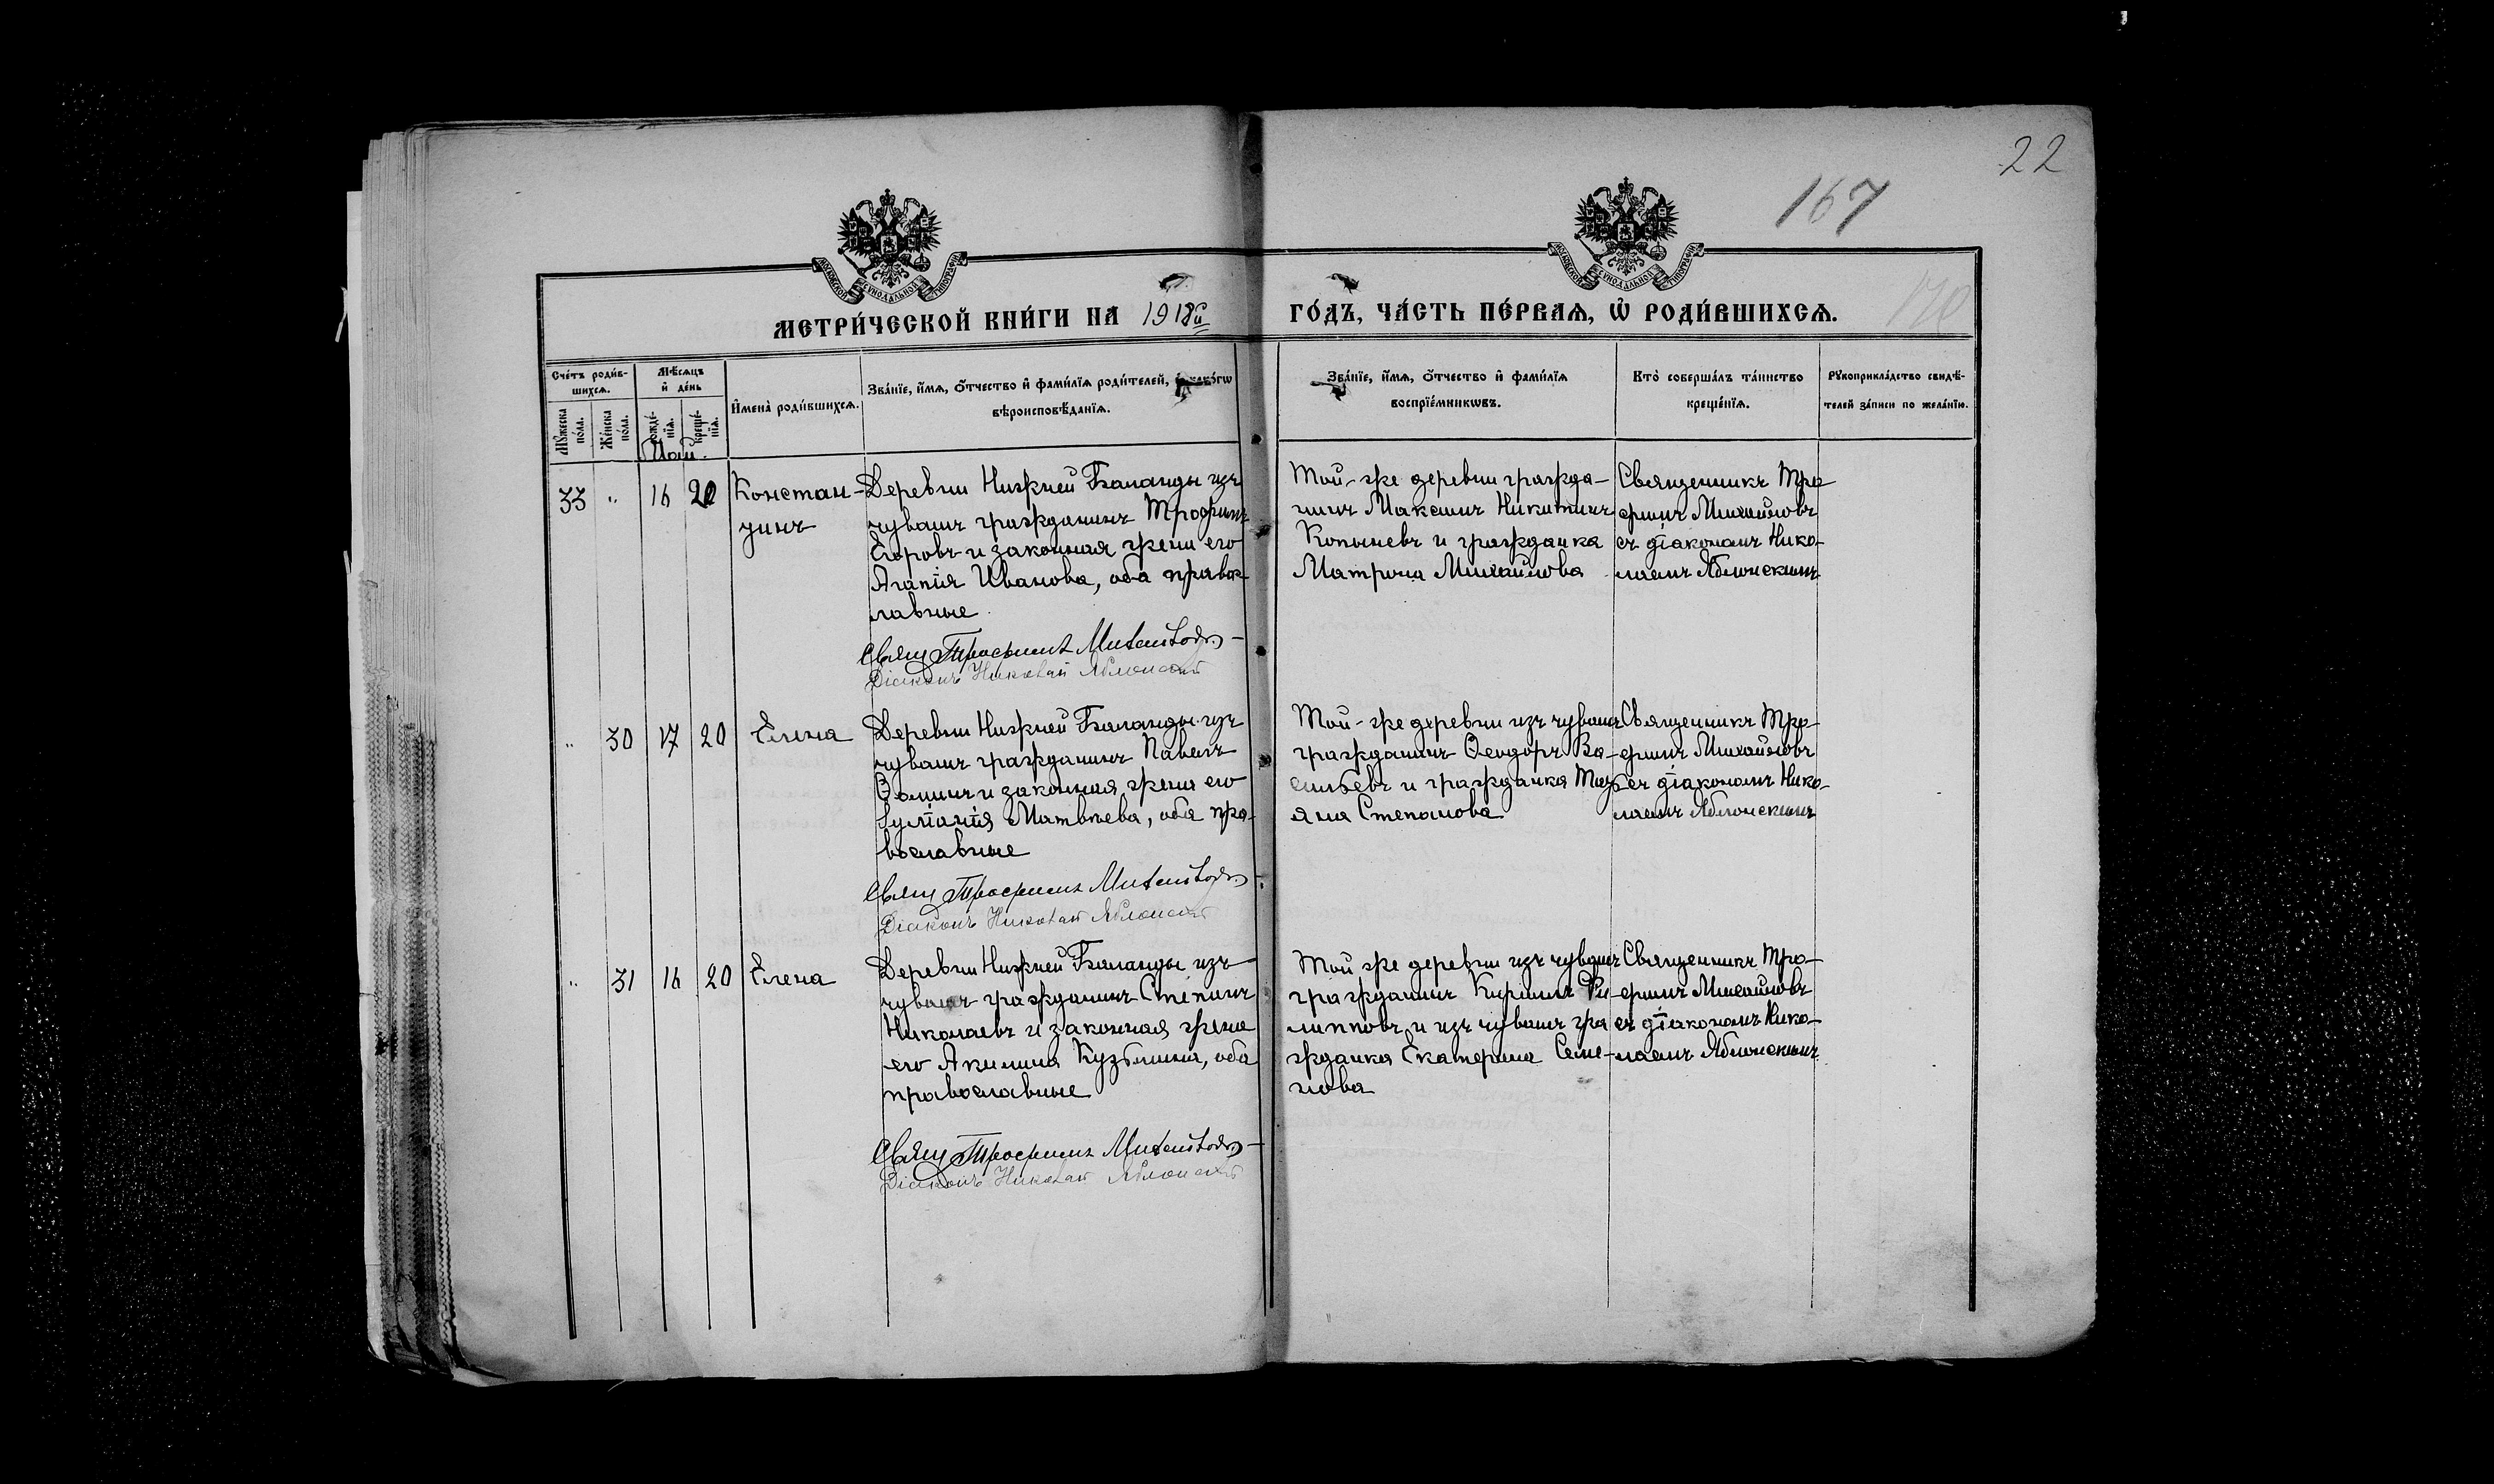 22
167
170
МОСКОВСКОЙ СѴНОДАЛЬНОЙ ТИПОГРАФІИ
МОСКОВСКОЙ СѴНОДАЛЬНОЙ ТИПОГРАФІИ
МЕТРИ́ЧЕСКОЙ КНИ́ГИ НА 1918й ГО́ДЪ, ЧА́СТЬ ПЕ́РВАѦ, Ѡ҆ РОДИ́ВШИХСѦ.
Сче́тъ роди́в-
шихсѧ.
Мѣ́сѧцъ
и҆ де́нь
Мꙋ́жеска
по́ла.
Же́нска
по́ла.
рожде́-
нїѧ.
креще́-
нїѧ.
И҆мена̀ роди́вшихсѧ.
Зва́нїе, и҆́мѧ, ѻ҆́тчество и҆ фами́лїѧ роди́телей, и҆ како́гѡ
вѣроисповѣ́данїѧ.
Зва́нїе, и҆́мѧ, ѻ҆́тчество и҆ фами́лїѧ
воспрїе́мникѡвъ.
Кто̀ соверша́лъ та́инство
креще́нїѧ.
Рꙋкоприкла́дство свидѣ́-
телей за́писи по жела́нїю.
Май.
33 " 16 20 Констан-
тинъ
Деревни Нижней Баланды изъ
чувашъ гражданинъ Трофимъ
Егоровъ и законная жена его
Агапія Иванова, оба правос-
лавные
Свящ Трофимъ Михайловъ
Діаконъ Николай Яблонский
Той-же деревни гражда-
нинъ Максимъ Никитинъ
Копыневъ и гражданка
Матрона Михайлова
Священникъ Тро-
фимъ Михайловъ
съ діакономъ Нико-
лаемъ Яблонскимъ
" 30 17 20 Елена
Деревни Нижней Баланды изъ
чувашъ гражданинъ Павелъ
Ѳоминъ и законная жена его
Іуліанія Матвѣева, оба пра-
вославные
Свящ Трофимъ Михайловъ
Діаконъ Николай Яблонский
Той-же деревни изъ чувашъ
гражданинъ Ѳеодоръ Ва-
сильевъ и гражданка Тать-
яна Степанова
Священникъ Тро-
фимъ Михайловъ
съ діакономъ Нико-
лаемъ Яблонскимъ
" 31 16 20 Елена
Деревни Нижней Баланды изъ
чувашъ гражданинъ Степанъ
Николаевъ и законная жена
его Акилина Кузьмина, оба
православные
Свящ Трофимъ Михайловъ
Діаконъ Николай Яблонский
Той же деревни изъ чувашъ
гражданинъ Кириллъ Фи-
липповъ и изъ чувашъ гра
жданка Екатерина Семе-
нова
Священникъ Тро-
фимъ Михайловъ
съ діакономъ Нико-
лаемъ Яблонскимъ